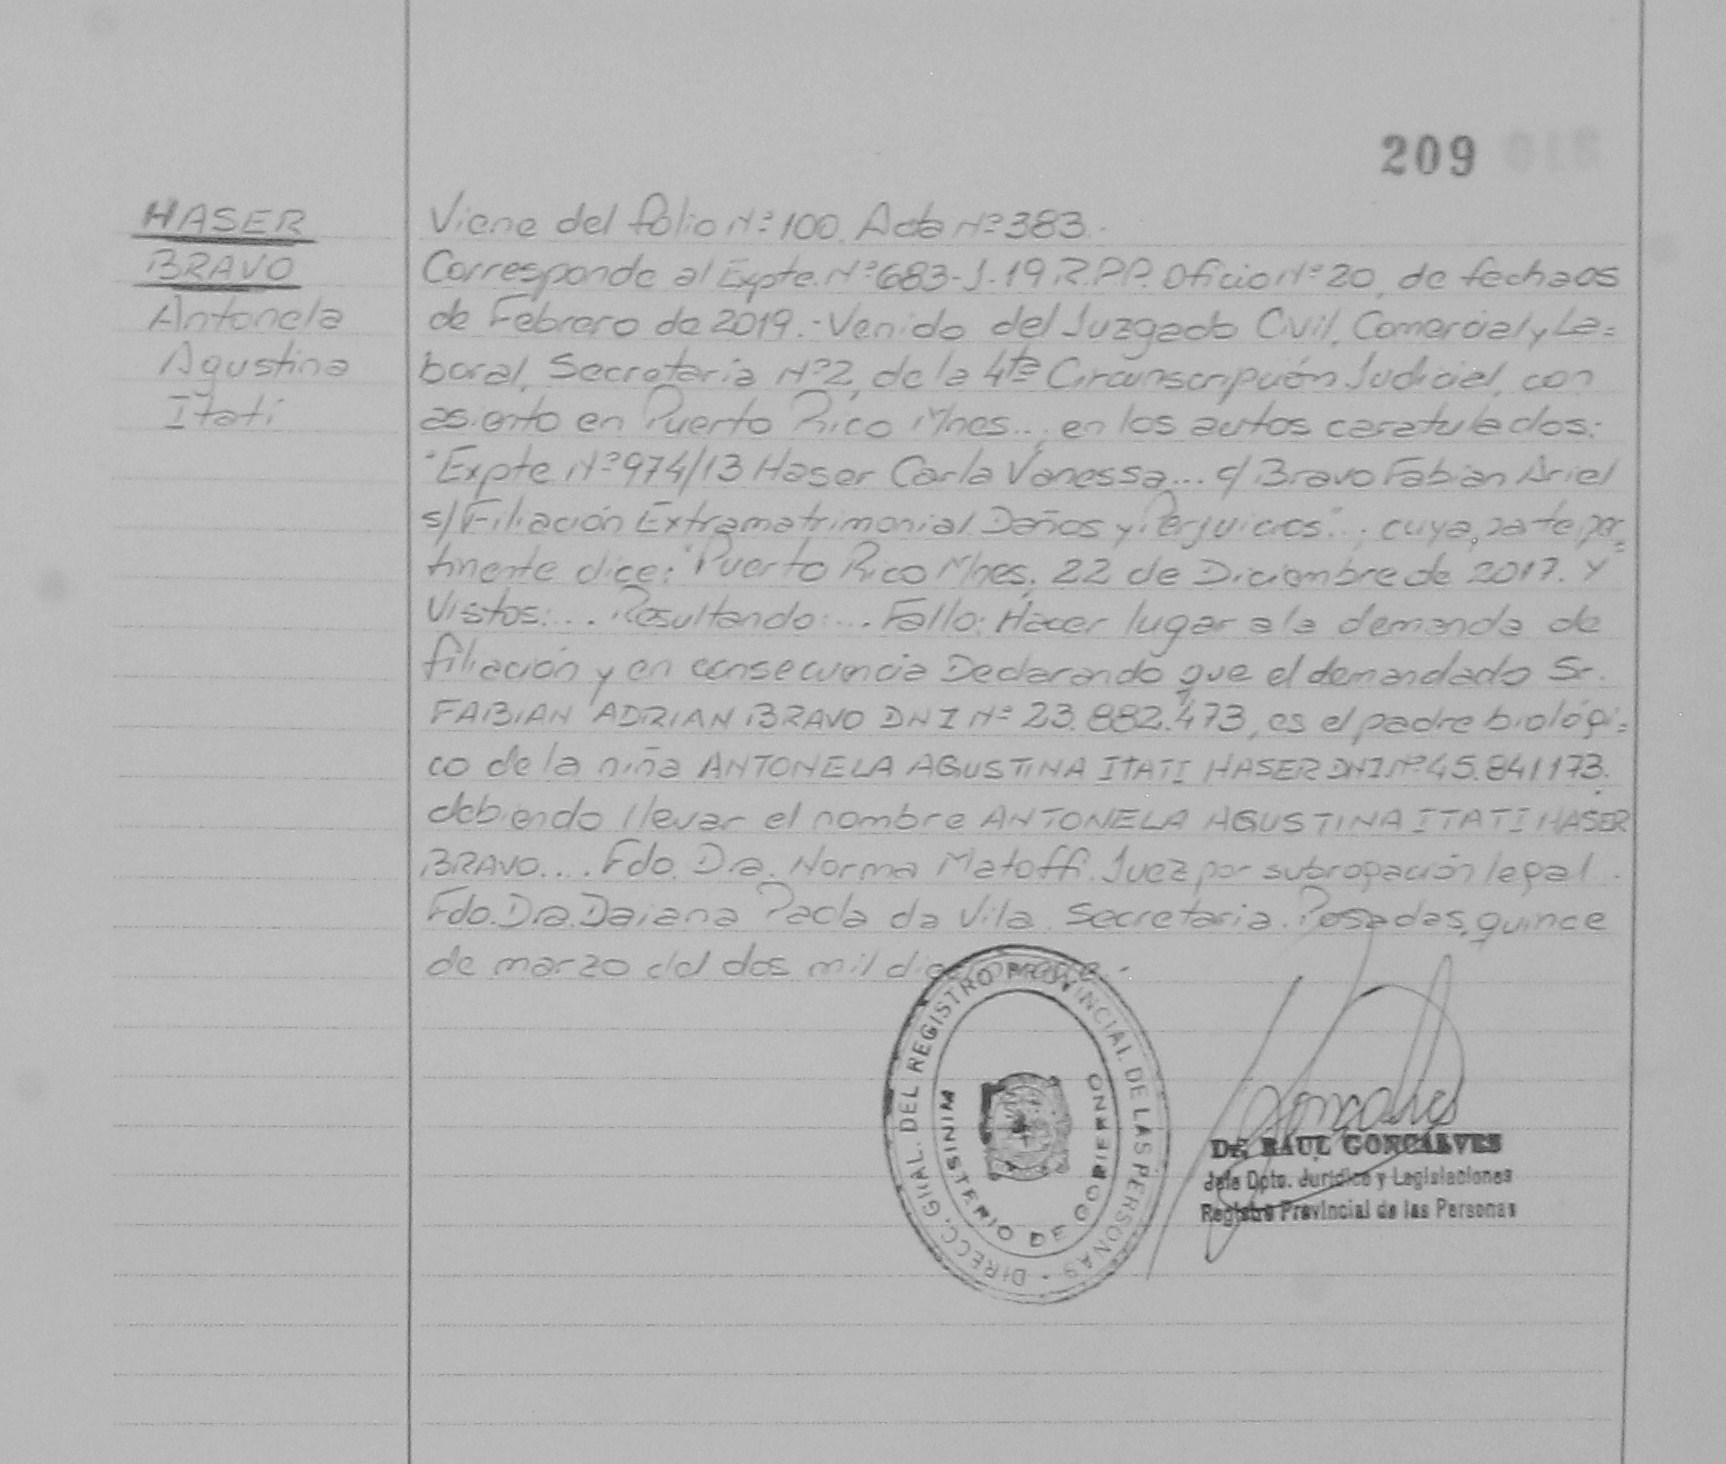 209
HASER
BRAVO
Antonela
Agustina
Itatí
Viene del folio Nº 100. Acta Nº 383.-
Corresponde al Expte. Nº 683-J-19 R.P.P. Oficio Nº 20, de fecha 05
de Febrero de 2019.- Venido del Juzgado Civil, Comercial y La=
boral, Secretaria Nº 2, de la 4ta Circunscripción Judicial, con
asiento en Puerto Rico Mnes..., en los autos caratulados:
"Expte. Nº 974/13 Haser Carla Vanessa... c/ Bravo Fabian Ariel
s/ Filiación Extramatrimonial Daños y Perjuicios"..., cuya parte per=
tinente dice: "Puerto Rico Mnes, 22 de Diciembre de 2017. Y
Vistos:... Resultando:... Fallo: Hacer lugar a la demanda de
filiación y en consecuencia Declarando que el demandado Sr.
FABIAN ADRIAN BRAVO DNI Nº 23.882.473, es el padre biológi=
co de la niña ANTONELA AGUSTINA ITATI HASER DNI Nº 45.841.173.
debiendo llevar el nombre ANTONELA AGUSTINA ITATI HASER
BRAVO.... Fdo. Dra. Norma Matoffi. Juez por subrogación legal.
Fdo. Dra. Daiana Paola da Vila. Secretaria. Posadas, quince
de marzo del dos mil
DIRECC. GRAL. DEL REGISTRO PROVINCIAL DE LAS PERSONAS
MINISTERIO DE GOBIERNO
Dr. RAUL GONCALVES
Jefe Dpto. Jurídico y Legislaciones
Registro Provincial de las Personas